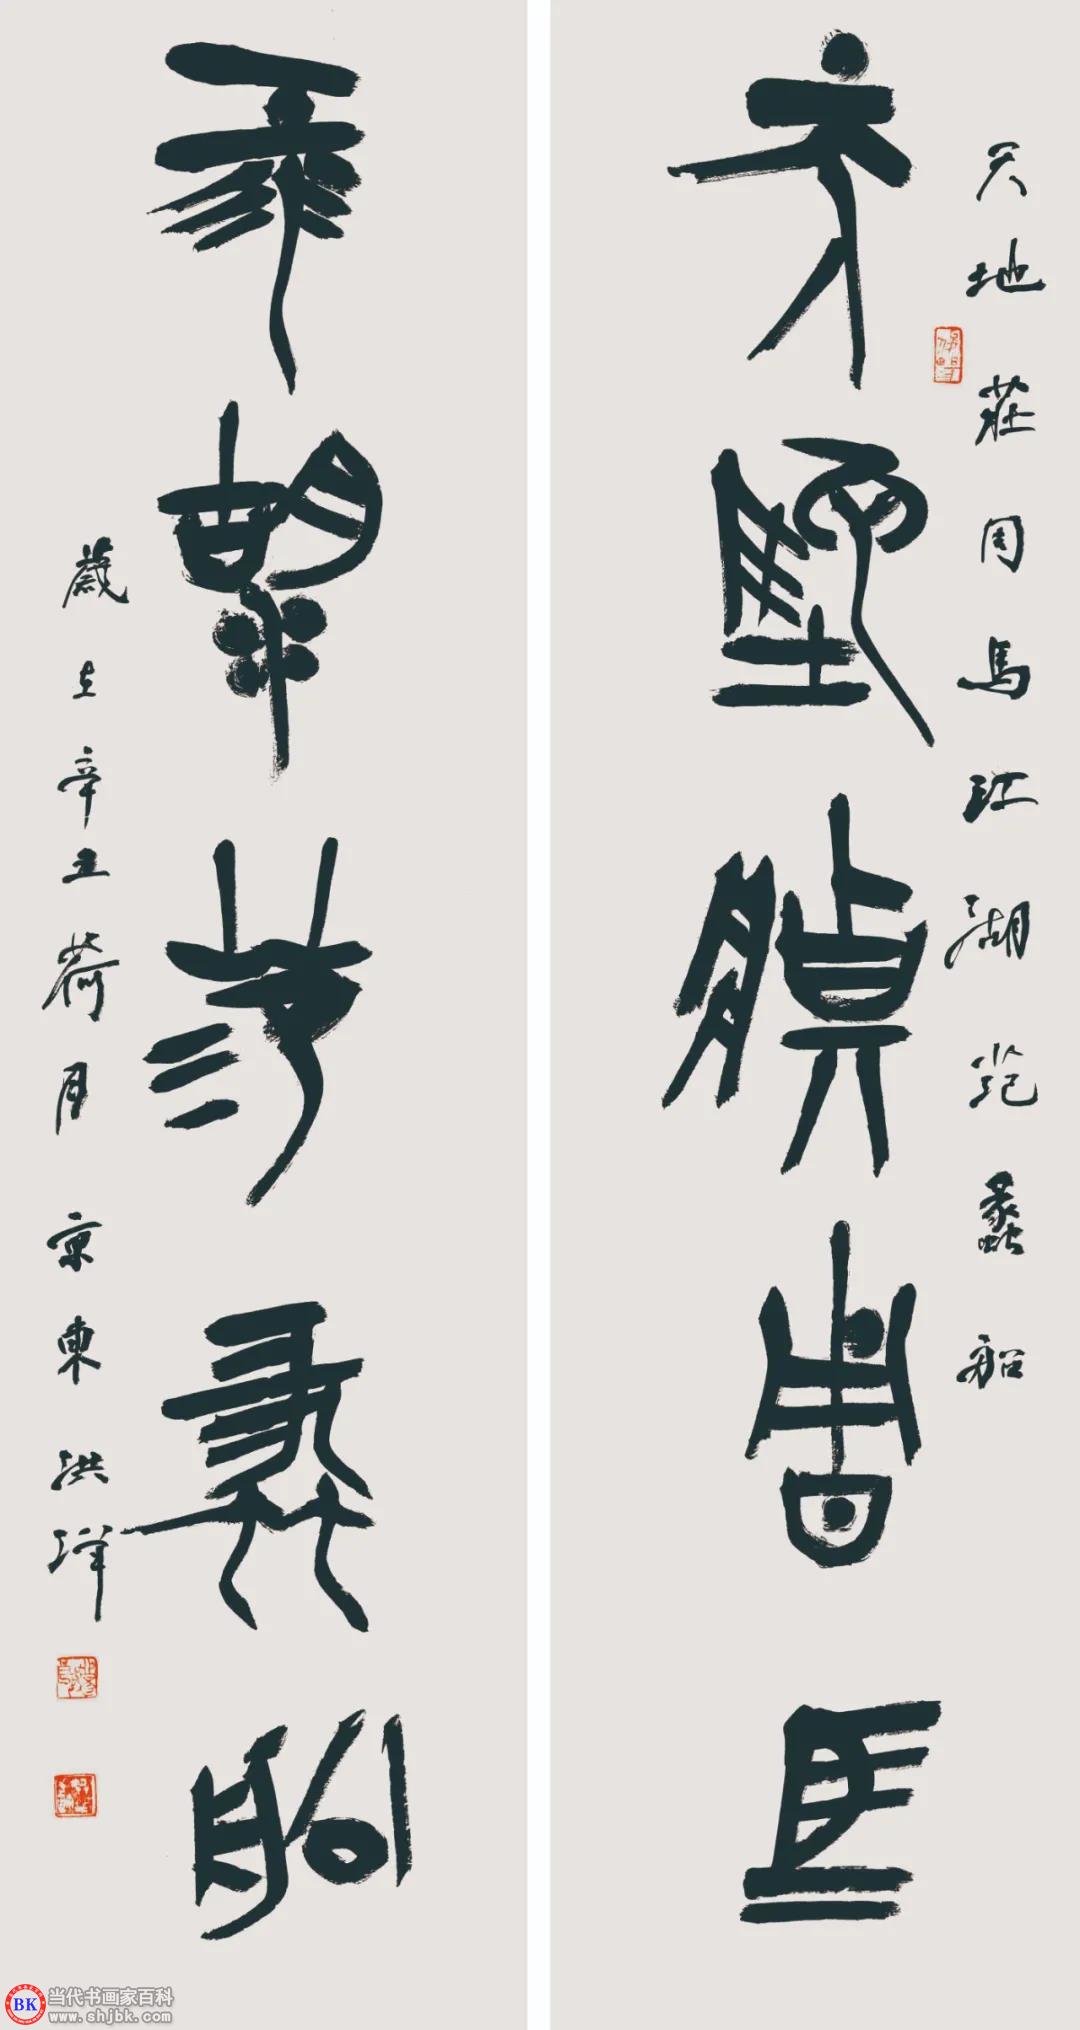 天地莊周馬江湖范蠡船
天地莊周馬
江湖范蠡船
歲在辛丑荷月京東洪洋
BK 当代书画家百科
www.shjbk.com